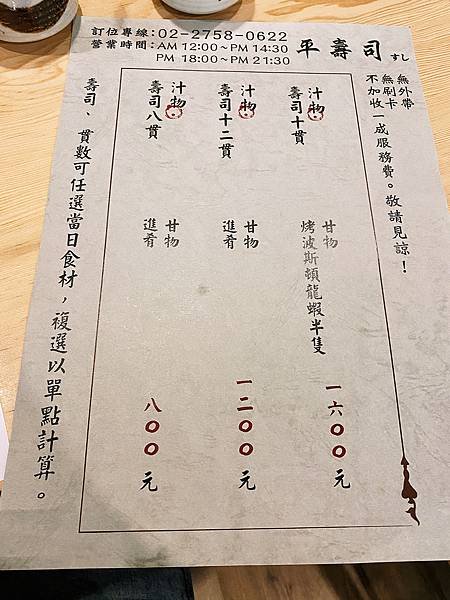 訂位專線:02-2758-0622
營業時間:AM 12:00~PM 14:30
PM 18:00~PM 21:30
平壽司 すし
無外帶
無刷卡
不加收一成服務費。敬請見諒!
汁物
壽司十貫
甘物
烤波斯頓龍蝦半隻
一六〇〇元
汁物
壽司十二貫
甘物
進肴
一二〇〇元
汁物
壽司八貫
甘物
進肴
八〇〇元
壽司、貫數可任選當日食材,複選以單點計算。